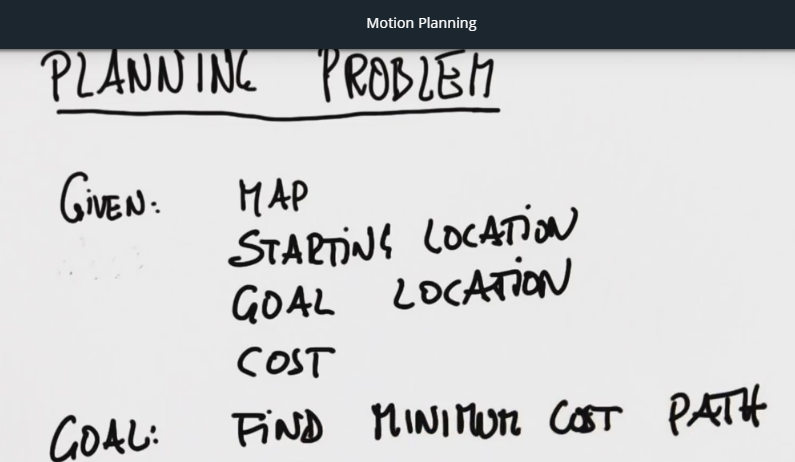 Motion Planning
PLANNING PROBLEM
GIVEN: MAP
STARTING LOCATION
GOAL LOCATION
COST
GOAL: FIND MINIMUM COST PATH